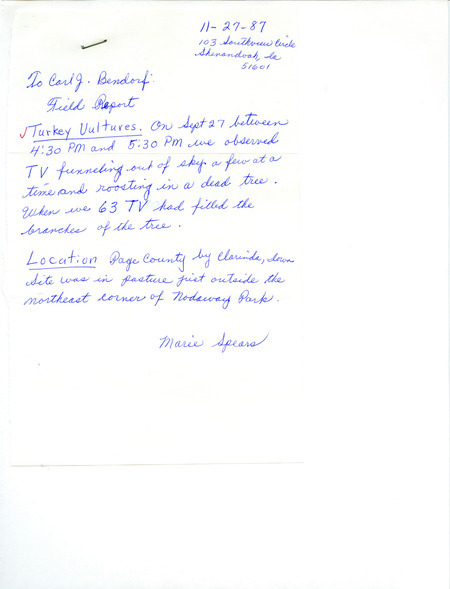 11-27-87
103 Southview Circle
Shenandoah, Ia
51601
To Carl J. Bendorf:
Field Report
Turkey Vultures. On Sept 27 between
4:30 PM and 5:30 PM we observed
TV funneling out of sky a few at a
time and roosting in a dead tree.
When we 63 TV had filled the
branches of the tree.
Location Page County by Clarinda, Iowa
Site was in pasture just outside the
northeast corner of Nodaway Park.
Marie Spears